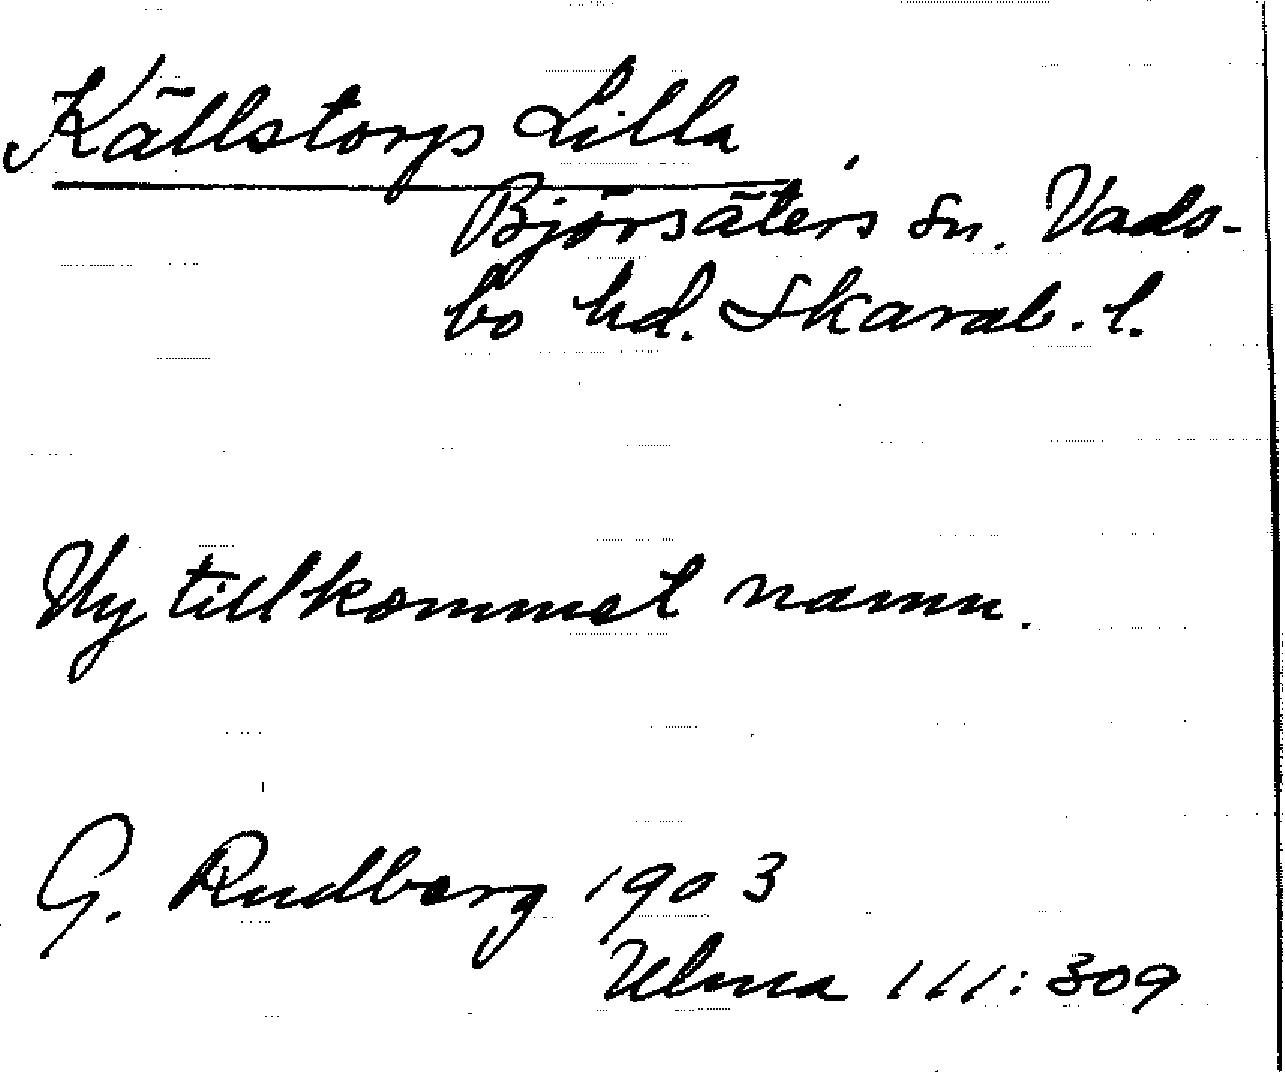 Källstorp Lilla
Björsäters sn. Vads-
bo hd. Skarab. l.
Ny tillkommet namn.
G. Rudberg 1903
Ulma 111:309